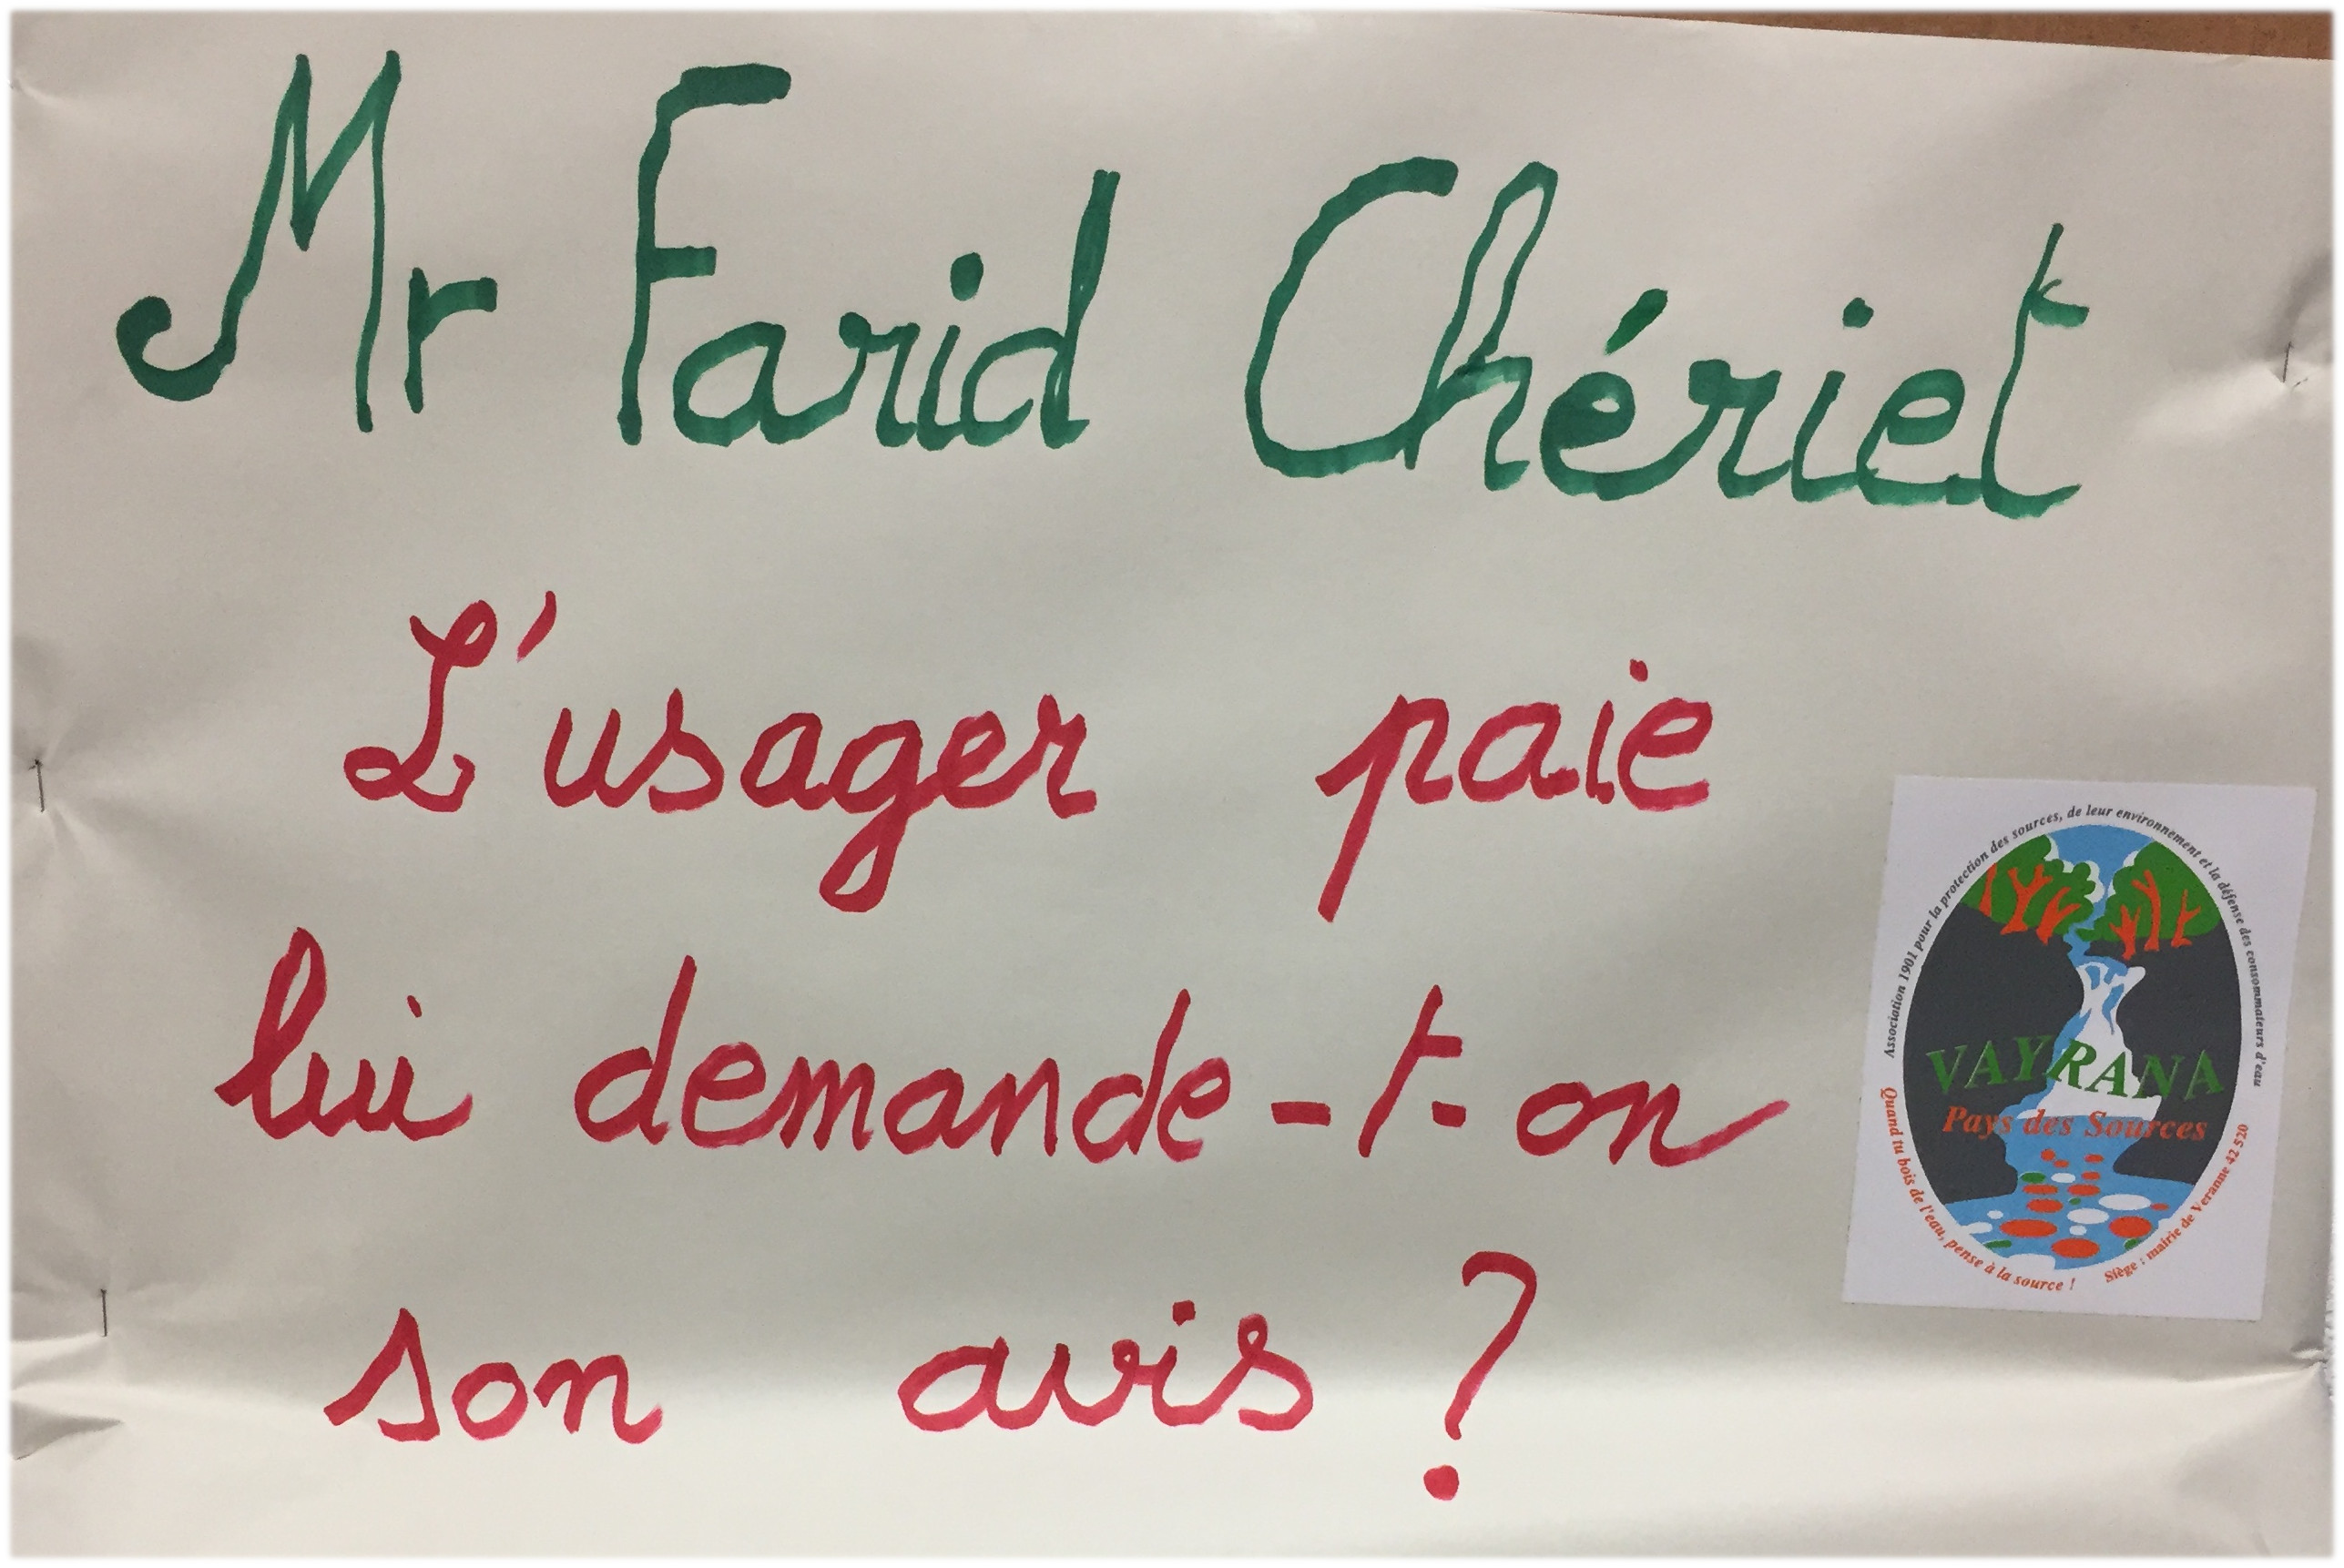 Mr Farid Chériet
L'usager paie
lui demande-t-on
son avis ?
Association 1901 pour la protection des sources, de leur environnement et la défense des consommateurs d'eau
VAYRANA
Pays des Sources
Quand tu bois de l'eau, pense à la source !
Siège : mairie de Veranne 42 520